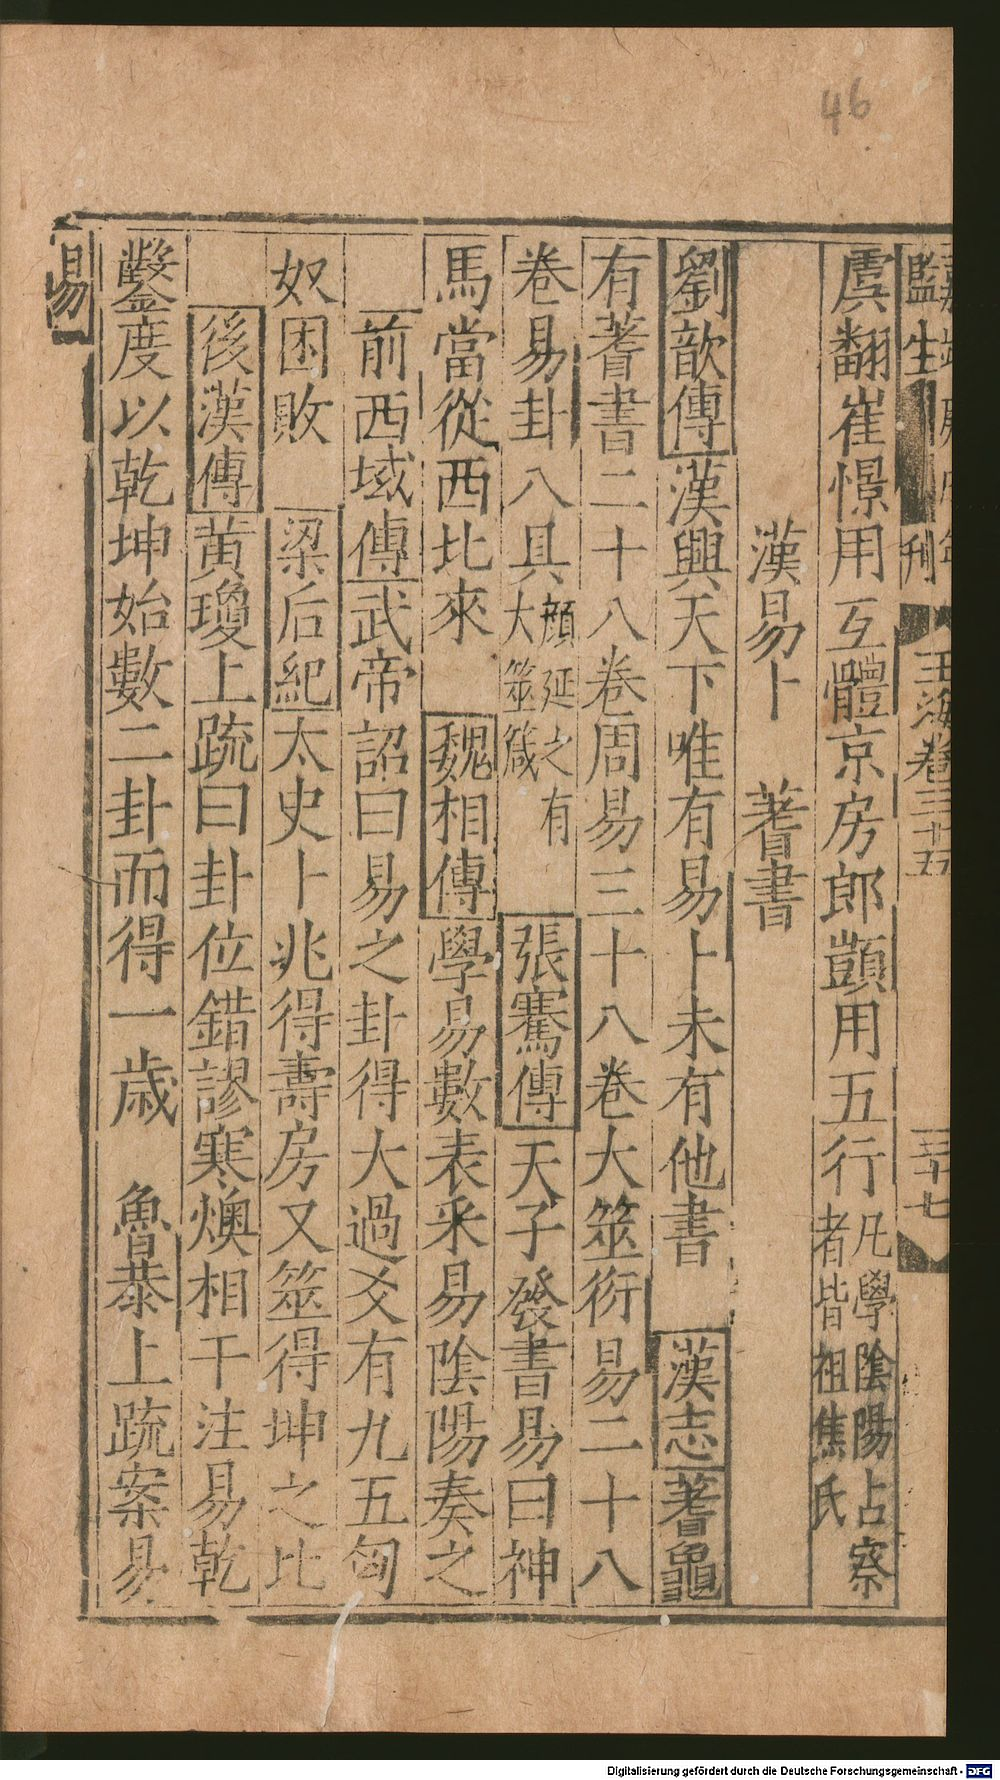 46
監生
刊
玉海卷三十五
三十七
虞翻崔憬用互體京房郎顗用五行凡學陰陽占察者皆祖焦氏
漢易卜 蓍書
劉歆傳漢興天下唯有易卜未有他書 漢志蓍龜
有蓍書二十八卷周易三十八卷大筮衍易二十八
卷易卦八具顏延之有大筮箴 張騫傳天子發書易曰神
馬當從西北來 魏相傳學易數表采易陰陽奏之
前西域傳武帝詔曰易之卦得大過爻有九五匈
奴困敗 梁后紀太史卜兆得壽房又筮得坤之比
後漢傳黃瓊上疏曰卦位錯謬寒燠相干注易乾
鑿度以乾坤始數二卦而得一歲 魯恭上疏案易
易
Digitalisierung gefördert durch die Deutsche Forschungsgemeinschaft - DFG